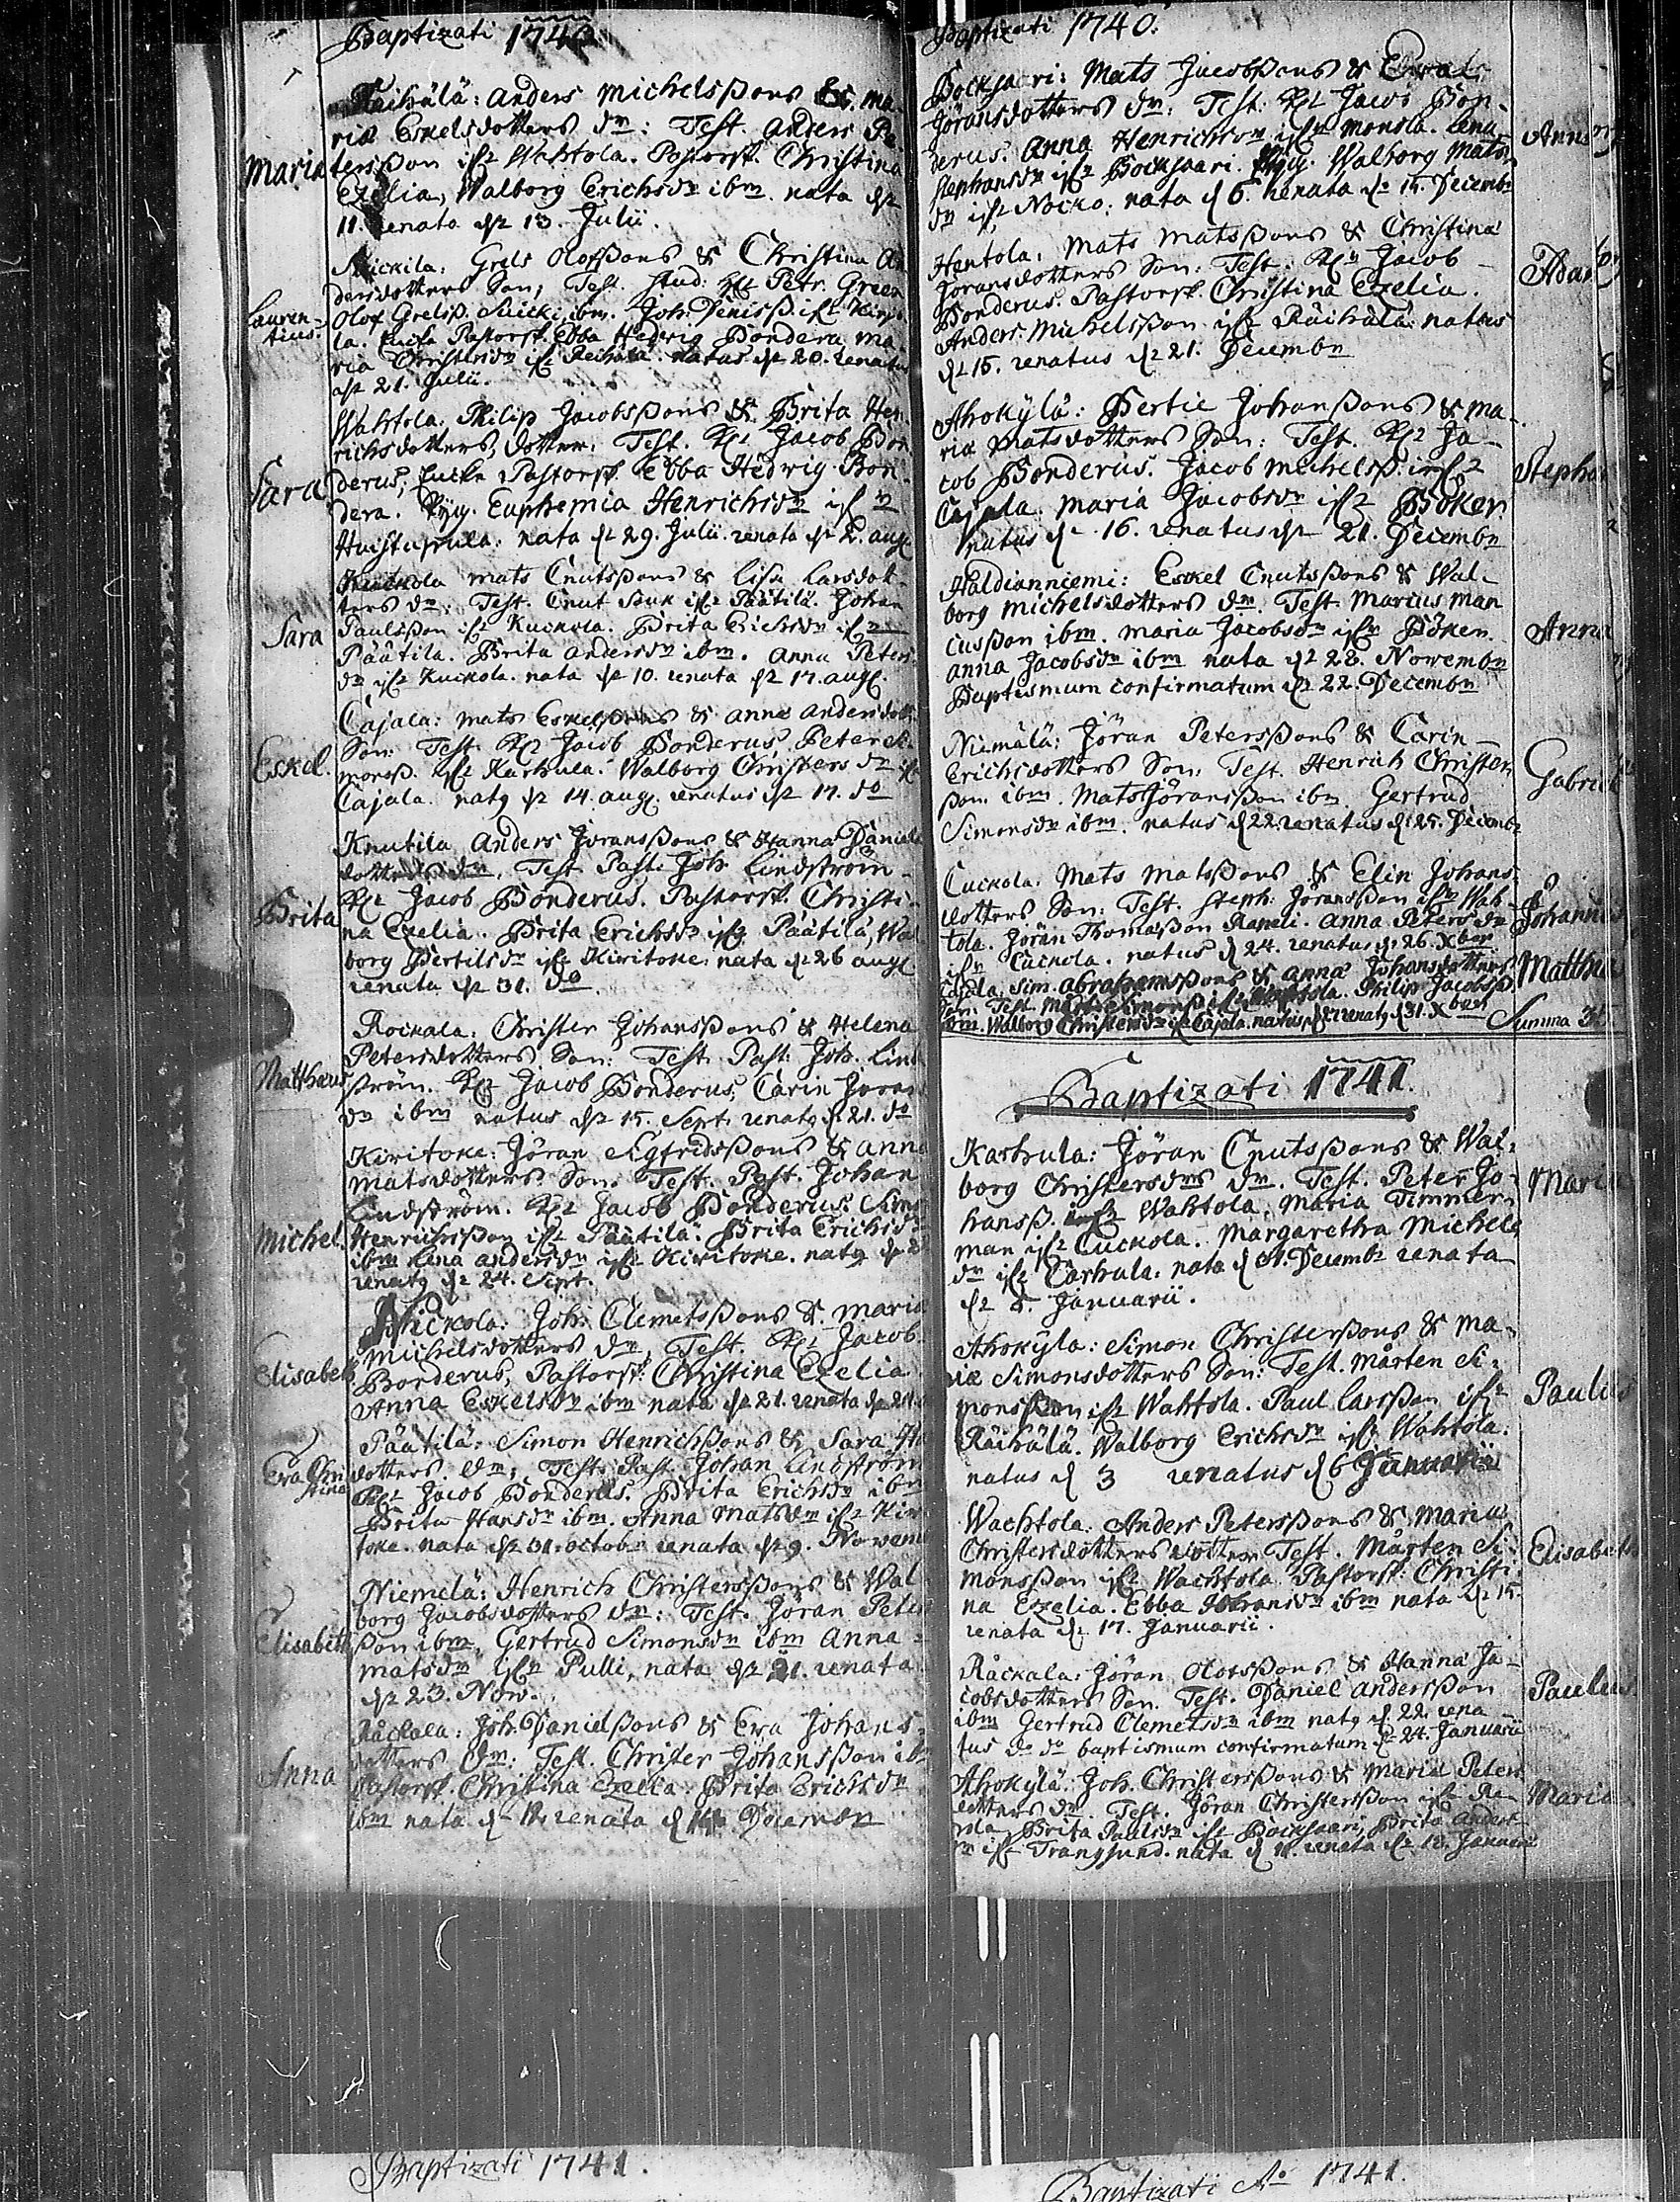 Baptizati 1740
Räihälä: Anders Michelsßons & Ma-
ria Eskelsdotters dr: Test. Anders Pe-
Maria
tersßon ifr Wahtola. Pastorsk. Christina
Ezelia, Walborg Erichsdr ibm. nata d
11. renata d 13. Julii.
Grels Olofsßons & Christina An
dersdotters Son; Test. stud: Petr. Green
Lauren-
tius
Olof Grelsß. ibm. Joh.
la. Pastorsk. Ebba Hedwig Bondera, Ma
ria Christersdr ifr Reihälä. natus d 20. renatus
d 21. Julii.
Wahtola. Philip Jacobsßons & Brita Hen
richsdotters, dotter. Test. Jacob Bon
Sara
derus; Pastorsk. Ebba Hedwig Bon-
dera. Pyg. Euphemia Henrichsdr ifr
nata d 29. Julii. renata d 2. aug
Kuckola Mats Cnutsßons & Lisa Larsdot-
ters dr. Test. Cnut ifr Päätilä. Johan
Sara
Paulsßon ifr Kuckola. Brita Erichsdr ifr
Päätila. Brita Andersdr ibm. Anna Peters
dr ifr Kuckola. nata d 10. renata d 17. aug.
Cajala: Mats Eskelsßons & Anna Andersdott
Eskel.
Son. Test. Jacob Bonderus, Peter Si-
monsß. ifr Karhula. Walborg Christersdr ifr
Cajala. natg d 14. aug. renatus d 17. do
Knutila Anders Jöransßons & Hanna Daniels
dotters dr. Test Past. Joh Lindström-
Brita
Jacob Bonderus. Pastorsk. Christi-
na Ezelia. Brita Erichsdr ifr Päätilä, Wal
borg Bertilsdr ifr Kiritoke. nata d 26 aug
renata d 31. do
Rockala. Christer Johansßons & Helena
Petersdotters Son: Test. Past: Joh. Lind
Matthæus
ström. Jacob Bonderus, Carin Jörans
dr ibm natus d 15. Sept. renatg d. 21. do
Kiritoke: Jöran Sigfridsßons & Anna
Matsdotters Son. Test. Past. Johan
Lindström. Jacob Bonderus. Simo
Michel.
Henrichsßon ifr Päätilä. Brita Erichsdr
ibm Lena Andersdr ifr Kiritoke. natg d
renatg d 24. Sept.
Joh. Clemetsßons & Maria
Michelsdotters dr, Test. Jacob
Elisabeth
Bonderus, Pastorsk. Christina Ezelia
Anna Eskelsdr ibm nata d 21. renata d
Päätilä: Simon Henrichsßons & Sara
Eva Chri
stina
dotters dr, Test. Past. Johan Lindström
Jacob Bonderus. Brita Erichsdr ibm
Brita Hansdr ibm. Anna Matsdr ifr Kiri
toke. nata d 31. octobr renata d 9. Novem
Niemelä: Henrich Christersßons & Wal
borg Jacobsdotters dr: Test. Jöran Peters
Elisabeth
ßon ibm, Gertrud Simonsdr ibm Anna
Matsdr ifr Pulli, nata d 21. renata
d 23. Nov.
Råckala: Joh. Danielsßons & Eva Johans-
dotters dr: Test. Christer Johansßon ibm
Anna
Pastorsk. Christina Ezelia. Brita Erichsdr
ibm nata d renata d Decembr
Baptizati 1741.
Baptizati 1740.
Bocksari: Mats Jacobsßons & Eva
Jöransdotters dr: Test. Jacob Bon-
derus. Anna Henrichsdr ifr Monola. Lena
Anna
Stephansdr ifr Bocksaari. Pyg. Walborg Mats
dr ifr Nocko: nata d 6. renata d 14. Decembr
Hentola, Mats Matsßons & Christina
Jöransdotters Son: Test. Jacob
Adam
Bonderus. Pastorsk. Christina Ezelia.
Anders Michelsßon ifr Räihälä: natus
d 15. renatus d 21. Decembr
Ahokylä: Bertil Johansßons & Ma-
ria Matsdotters Son: Test. Ja-
Stepha
cob Bonderus. Jacob Michelsß. ifr
Cajala. Maria Jacobsdr ifr Böker
natus d 16. renatus d 21. Decembr
Haldianniemi: Eskel Cnutsßons & Wal-
borg Michelsdotters dr. Test. Marcus Mar
Anna
cusßon ibm. Maria Jacobsdr ifr Böken
Anna Jacobsdr ibm nata d 28. Novembr
Baptismum confirmatum d 22. Decembr
Niemälä: Jöran Petersßons & Carin
Erichsdotters Son. Test. Henrich Christers
Gabriel
ßon ibm. Mats Jöransßon ibm. Gertrud
Simonsdr ibm. natus d 22 renatus d. 25. Decembr
Cuckola. Mats Matsßons & Elin Johans
dotters Son: Test. Steph. Jöransßon ifr Wah-
Johannes
tola. Jöran Thomasßon Anna Petersdr
ifr Cuckola. natus d 24. renatus d. 26. Xber
Cajala, Sim. Abrahamsßons & Anna Johansdotters
Matthias
Son. Test. Simonsß ifr Philip Jacobsß
ibm. Walborg Christersdr ifr Cajala. natus d renatg d 31. Xber
Summa 35
Baptizati 1741.
Karhula: Jöran Cnutsßons & Wal-
borg Christersdrs dr. Test. Peter Jo-
Maria
hansß. ifr Wahtola, Maria Timmer-
man ifr Cuckola. Margaretha Michels
dr ifr Carhula. nata d 31. Decembr renata
d 5. Januarii.
Ahokyla: Simon Christersßons & Ma-
riæ Simonsdotters Son: Test. Mårten Si-
Paulus
monsßon ifr Wahtola. Paul Larsßon ifr
Räihälä. Walborg Erichsdr ifr Wahtola.
natus d 3 renatus d 6 Januarii
Wachtola. Anders Petersßons & Maria
Christersdotters dotter Test. Mårten Si-
Elisabeth
monsßon ifr Wachtola Pastorsk: Christi-
na Ezelia. Ebba Jöransdr ibm nata d 15.
renata d 17. Januarii.
Råckala: Jöran Olofsßons & Hanna Ja-
cobsdotters Son. Test. Daniel Andersßon
Paulus
ibm Gertrud Clemetsdr ibm natg d 22. rena-
tus do do baptismum confirmatum d 24. Januarii
Ahokylä: Joh. Christersßons & Maria Peters
dotters dr. Test. Jöran Christersßon ifr
Maria
Brita Paulsdr ifr Bocksaari, Brita Anders
dr ifr Trangsund. nata d 11. renata d 18. Januarii
Baptizati Ao 1741.